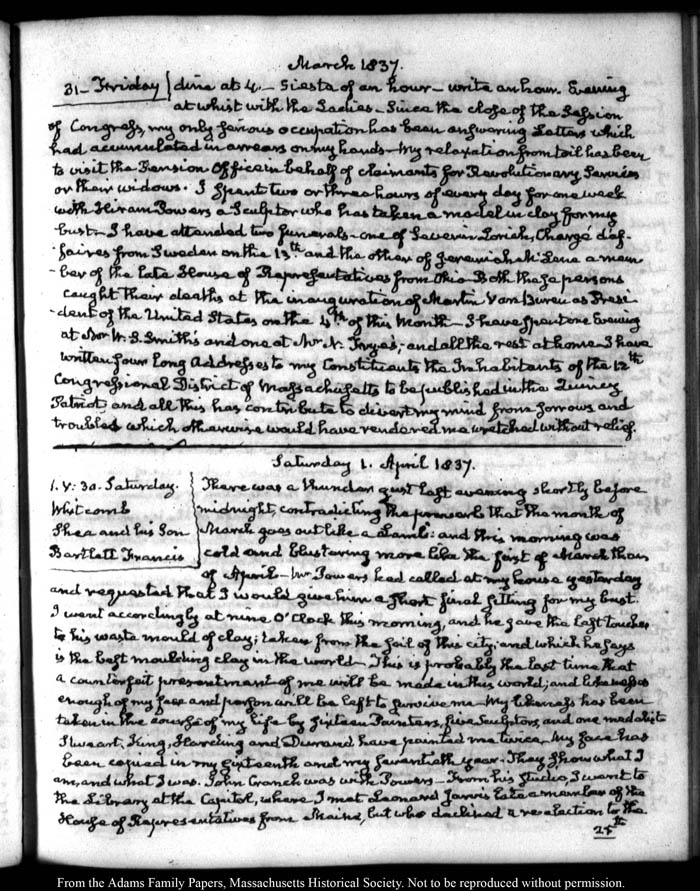 March 1837.
31 – Friday dine at 4. – Siesta of an hour – write an hour. Evening
at whist with the Ladies – Since the close of the Session
of Congress, my only serious occupation has been answering Letters which
had accumulated in arrears on my hands – My relaxation from toil has been
to visit the Pension Office in behalf of claimants for Revolutionary Services
or their widows. I spent two or three hours of every day for one week
with Hiram Powers a Sculptor who has taken a model in clay for my
bust – I have attended two funerals – one of Severin Lorich, Chargé d'af-
-faires from Sweden on the 13th and the other of Jeremiah McLene a mem
-ber of the late House of Representatives from Ohio – Both these persons
caught their deaths at the inauguration of Martin Van Buren as Presi
-dent of the United States on the 4th of this Month – I have spent one Evening
at Mr W. S. Smith's and one at Mr N. Frye's, and all the rest at home – I have
written four long Addresses to my Constituents the Inhabitants of the 12th
Congressional District of Massachusetts to be published in the Quincy
Patriot, and all this has contribute to divert my mind from sorrows and
troubles which otherwise would have rendered me wretched without relief.
Saturday 1. April 1837.
1. V: 30. Saturday.
Whitcomb
Shea and his Son
Bartlett Francis
There was a thunder gust last evening shortly before
midnight, contradicting the proverb that the month of
March goes out like a Lamb: and this morning was
cold and blustering more like the first of March than
of April – Mr Powers had called at my house yesterday
and requested that I would give him a short final sitting for my bust.
I went accordingly at nine O'Clock this morning, and he gave the last touches
to his waste mould of clay; taken from the soil of this city, and which he says
is the best moulding clay in the world – This is probably the last time that
a counterfeit presentment of me will be made in this world; and likenesses
enough of my face and person will be left to survive me – My likeness has been
taken in the course of my life by sixteen Painters, five Sculptors, and one medalist
Stewart, King, Harding and Durand have painted me twice. My face has
been copied in my sixteenth and my seventieth year. They show what I
am, and what I was. John Cranch was with Powers – From his studio, I went to
the Library at the Capitol, where I met Leonard Jarvis late a member of the
House of Representatives from Maine, but who declined a reelection to the
25th
From the Adams Family Papers, Massachusetts Historical Society. Not to be reproduced without permission.